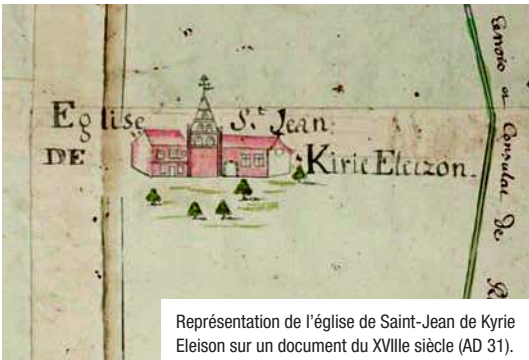 Eglise S.t Jean
DE Kirie Eleizon.
Consulat de
Représentation de l'église de Saint-Jean de Kyrie
Eleison sur un document du XVIIIe siècle (AD 31).